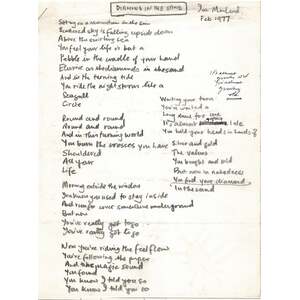 DIAMONDS IN THE SAND
Feb 1977
Sitting on a mountain in the sun
sky is falling upside down
Above the swirling sea
You feel your life is but a
Pebble in the cradle of your hand
Elusive as diamonds in the sand
And in the turning tide
You ride the night storms like a
Seagull
Circle
Round and round
Round and round
And in this turning world
You burn the crosses you have
Shouldered
All your
Life
Moving outside the window
you used to stay inside
And for cover underground
But now
You've really got to go
You've really got to go
Now you're riding the feel flow
You're following the paper
And the magic sound
You found
You know I told you so
You know I told you so
Waiting your turn
You've waited a
Long time for
It's almost late
You hold your head in hands of
Silver and gold
The values
You bought and sold
But now in nakedness
You find your diamond
In the sand
It's almost
growing
old